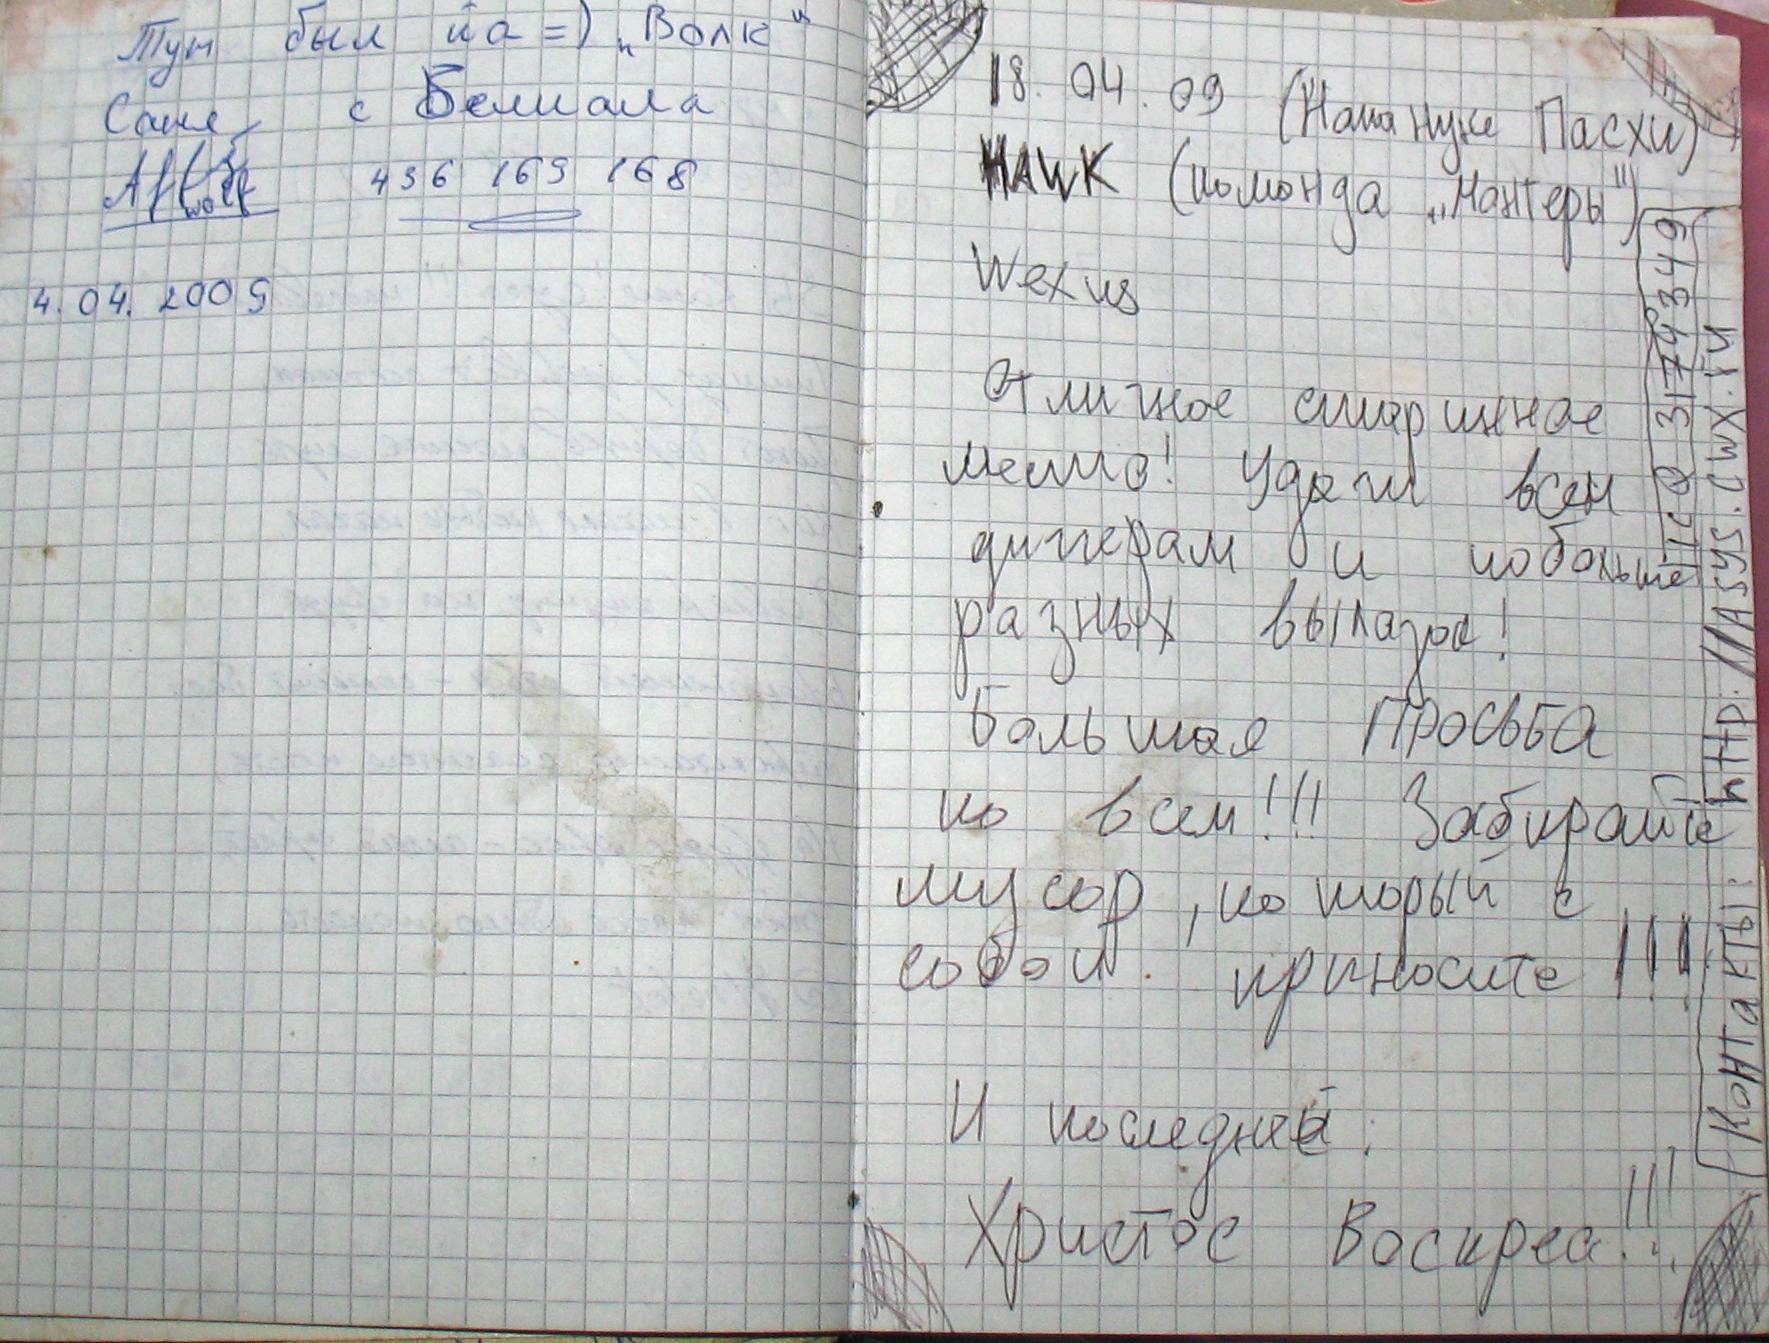 Тут был йа =) „Волк"
Саня с Белиала
436 169 168
4.04.2009
18.04.09 (Нанануне Пасхи)
HAWK (команда „Мантеры")
Wexus
Отличное старинное
место! Удачи всем
диггерам и побольше
разных вылазок!
Большая ПРОСЬБА
ко всем!!! Забирайте
мусор, который с
собой приносите!!!
И последнее:
Христос Воскрес!!!
Контакты: http://ASYS.CWX.ru
ICQ